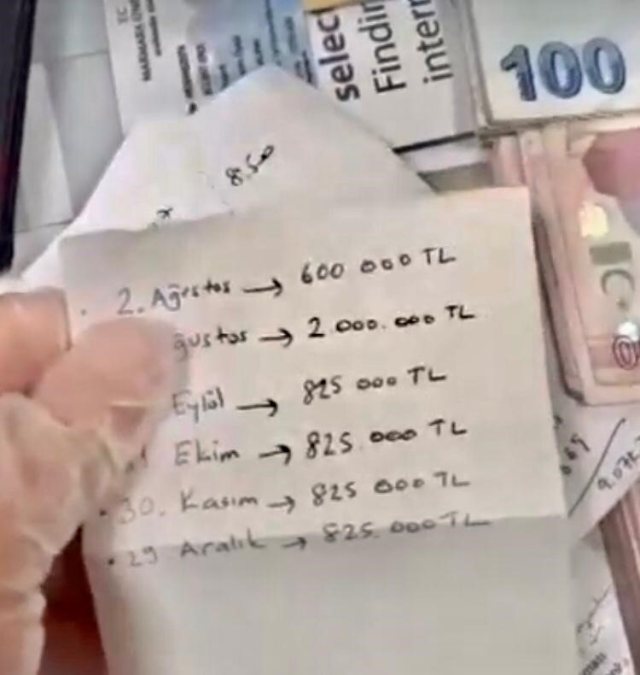 selec
Findin
intern
100
8.50
. 2. Ağustos → 600 000 TL
ğustos → 2.000.000 TL
Eylül → 825 000 TL
Ekim → 825.000 TL
. 30. Kasım → 825 000 TL
. 29 Aralık → 825.000 TL